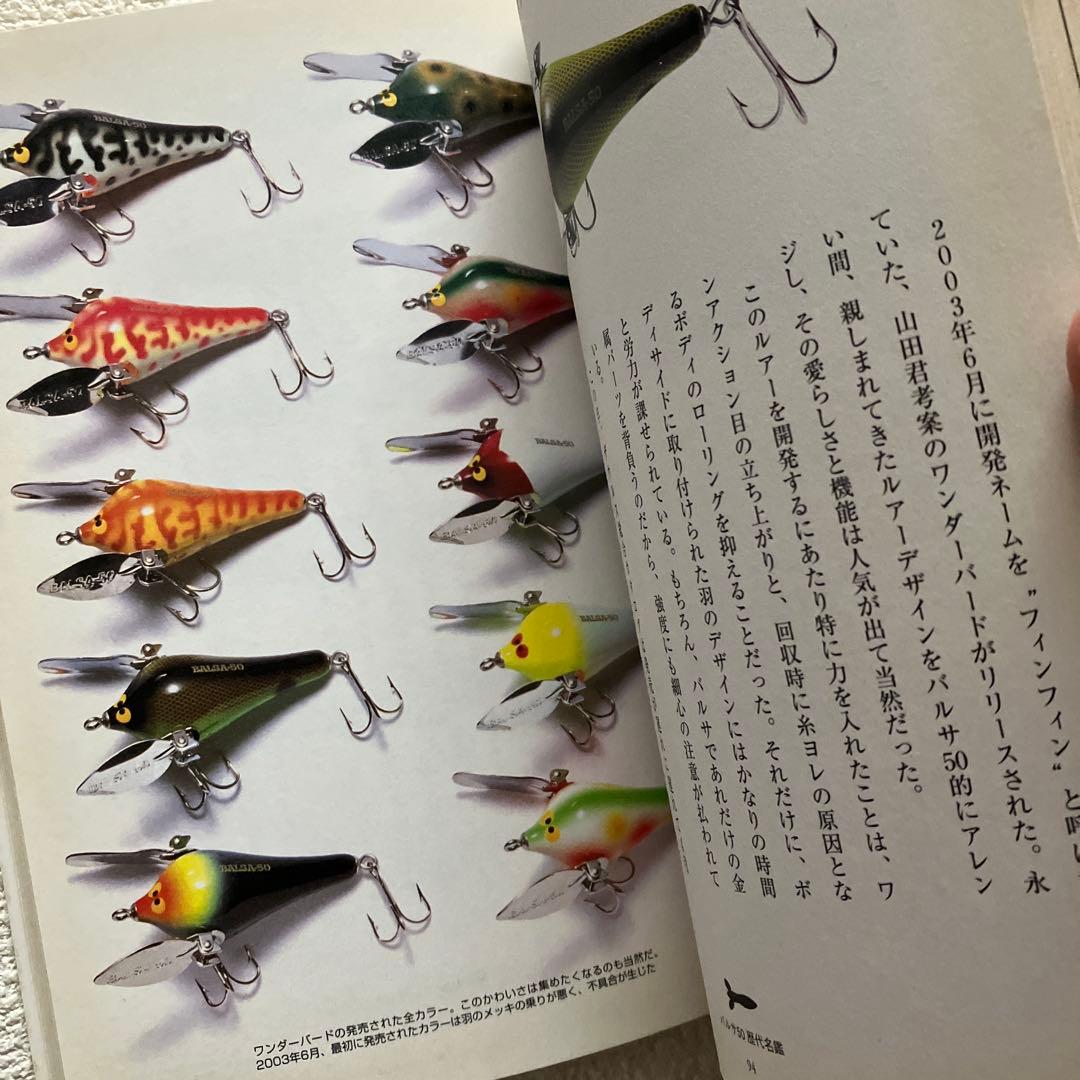 BALSA-50
BALSA-50
BALSA-50
BALSA-50
BALSA-50
BALSA-50
BALSA-50
ワンダーバードの発売された全カラー。このかわいさは集めたくなるのも当然だ。
2003年6月、最初に発売されたカラーは羽のメッキの乗りが悪く、不具合が生じた
2003年6月に開発ネームを〝フィンフィン〟と呼
ていた、山田君考案のワンダーバードがリリースされた。永
い間、親しまれてきたルアーデザインをバルサ50的にアレン
ジし、その愛らしさと機能は人気が出て当然だった。
このルアーを開発するにあたり特に力を入れたことは、ワ
ンアクション目の立ち上がりと、回収時に糸ヨレの原因とな
るボディのローリングを抑えることだった。それだけに、ボ
ディサイドに取り付けられた羽のデザインにはかなりの時間
と労力が課せられている。もちろん、バルサであれだけの金
属パーツを背負うのだから、強度にも細心の注意が払われて
いる。
バルサ50 歴代名鑑
94